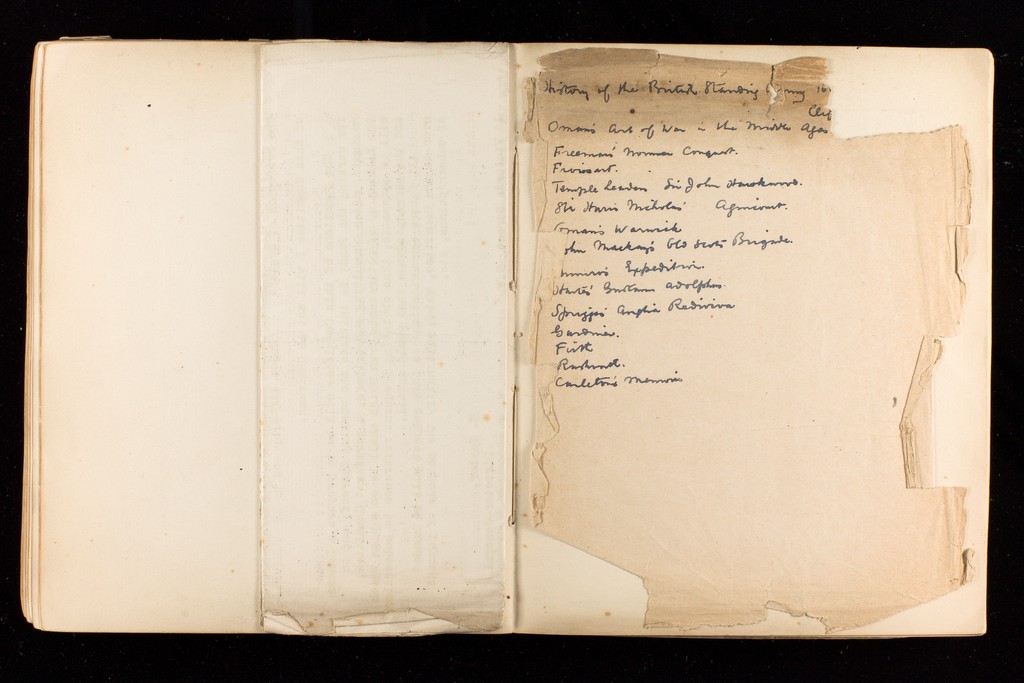 History of the British Standing Army 16
Clif
Oman's Art of War in the Middle Ages
Freeman's Norman Conquest.
Froissart.
Temple Leader Sir John Hawkwood.
Sir Harris Nicholas' Agincourt.
Oman's Warwick
John Mackay's Old Scots Brigade.
Monro's Expedition.
Harte's Gustavus Adolphus.
Sprigge's Anglia Rediviva
Gardiner.
Firth
Rushworth.
Carleton's Memoirs